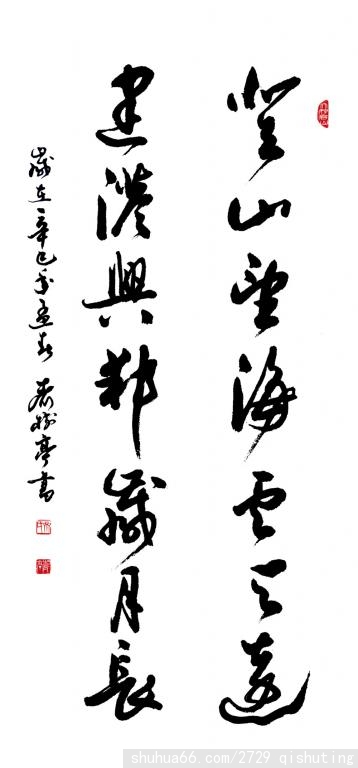 登山望海云天遠
建港興邦歲月長
歲在辛巳年孟春 齊樹亭書
shuhua66.com/2729 qishuting